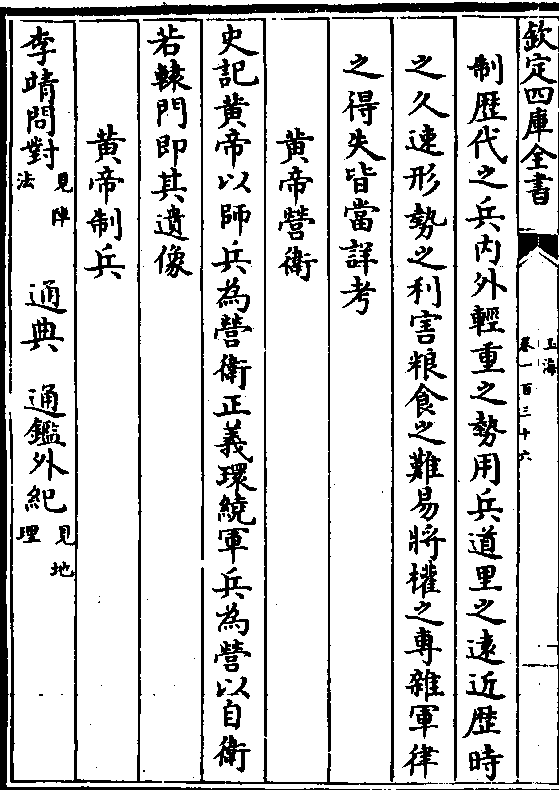 欽定四庫全書
玉海
卷一百三十六
制歴代之兵内外輕重之勢用兵道里之逺近歴時
之久速形勢之利害粮食之難易將權之專雜軍律
之得失皆當詳考
黄帝營衛
史記黄帝以師兵為營衛正義環繞軍兵為營以自衛
若轅門即其遺像
黄帝制兵
李靖問對見陣法 通典 通鑑外紀見地理